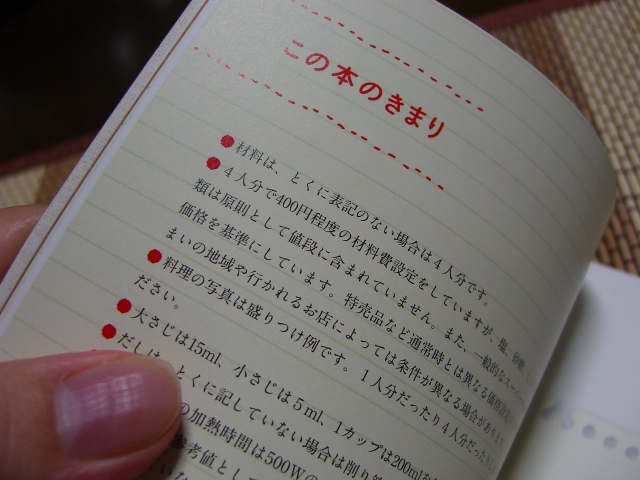 この本のきまり
●材料は、とくに表記のない場合は4人分です。
●4人分で400円程度の材料費設定をしていますが、塩、砂糖、
類は原則として値段に含まれていません。また、一般的なスーパー
価格を基準にしています。特売品など通常時とは異なる価格
まいの地域や行かれるお店によっては条件が異なる場合があります
●料理の写真は盛りつけ例です。1人分だったり4人分だったり
ださい。
●大さじは15ml、小さじは5ml、1カップは200ml
●だしは、とくに記していない場合は削り
の加熱時間は500Wの
参考値として